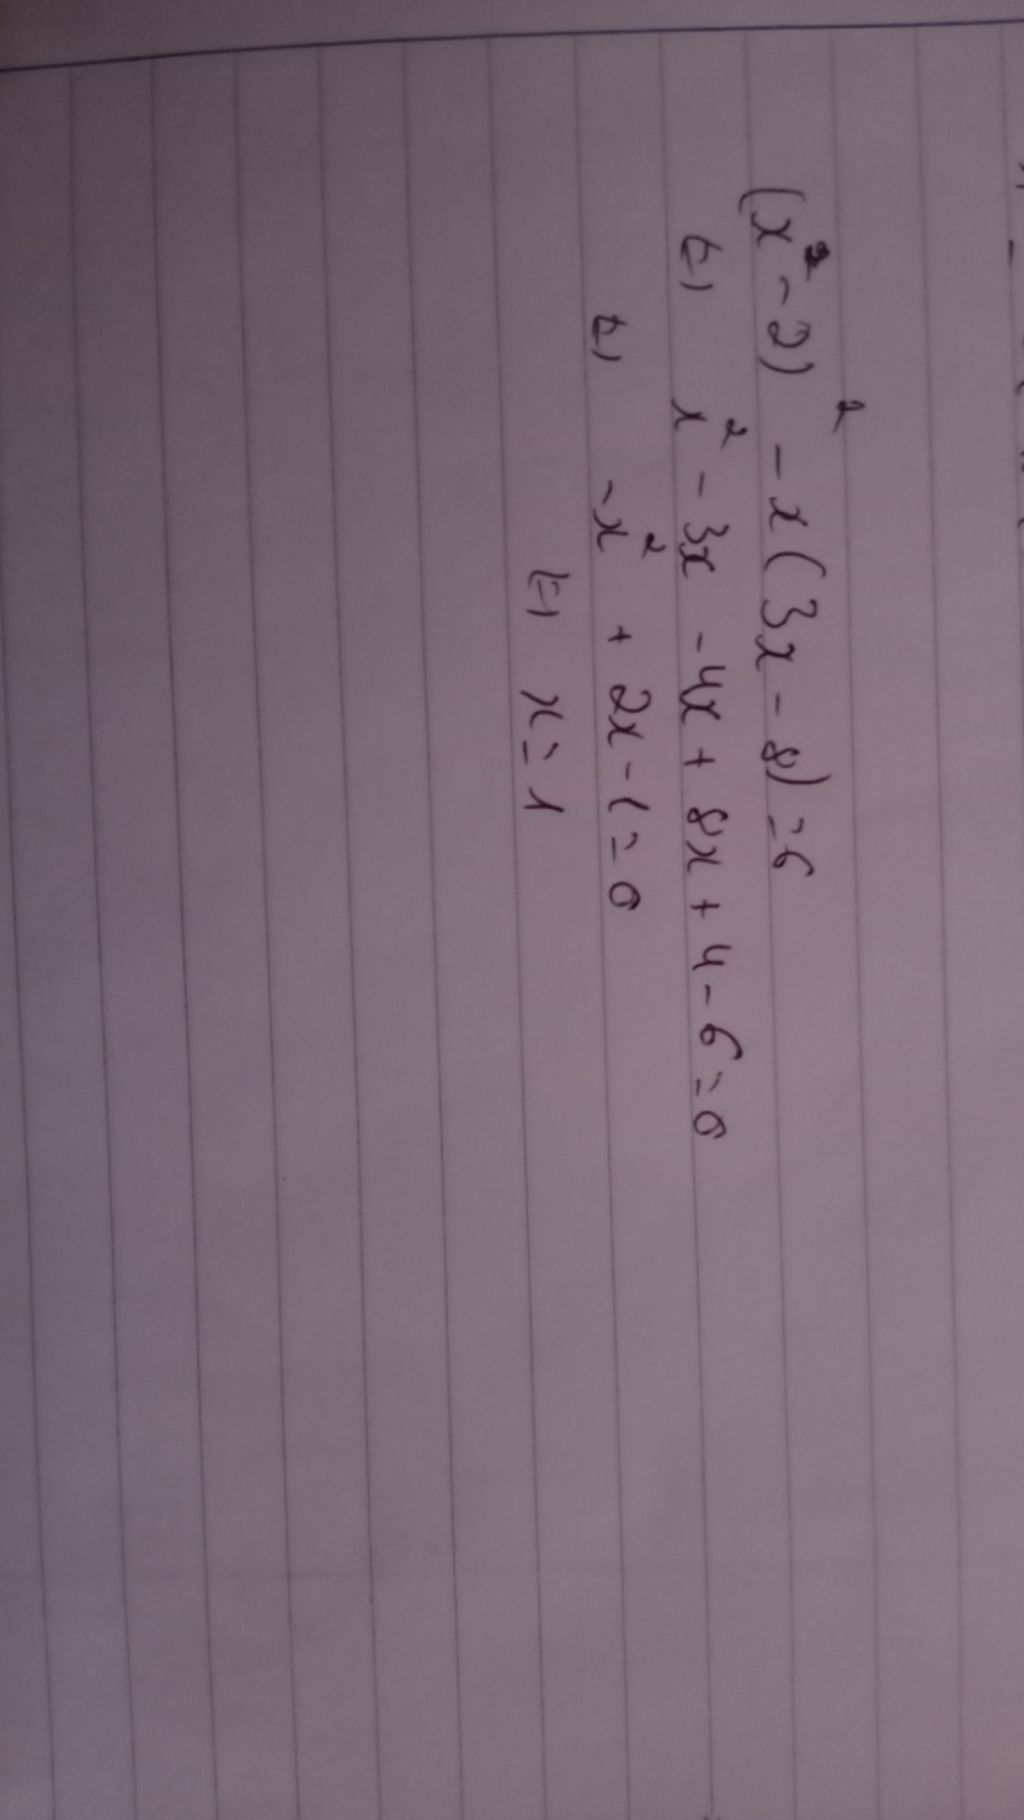 (x² - 2)² - x(3x - 8) = 6
(=) x² - 3x - 4x + 8x + 4 - 6 = 0
(=) -x² + 2x - 1 = 0
(=) x = 1